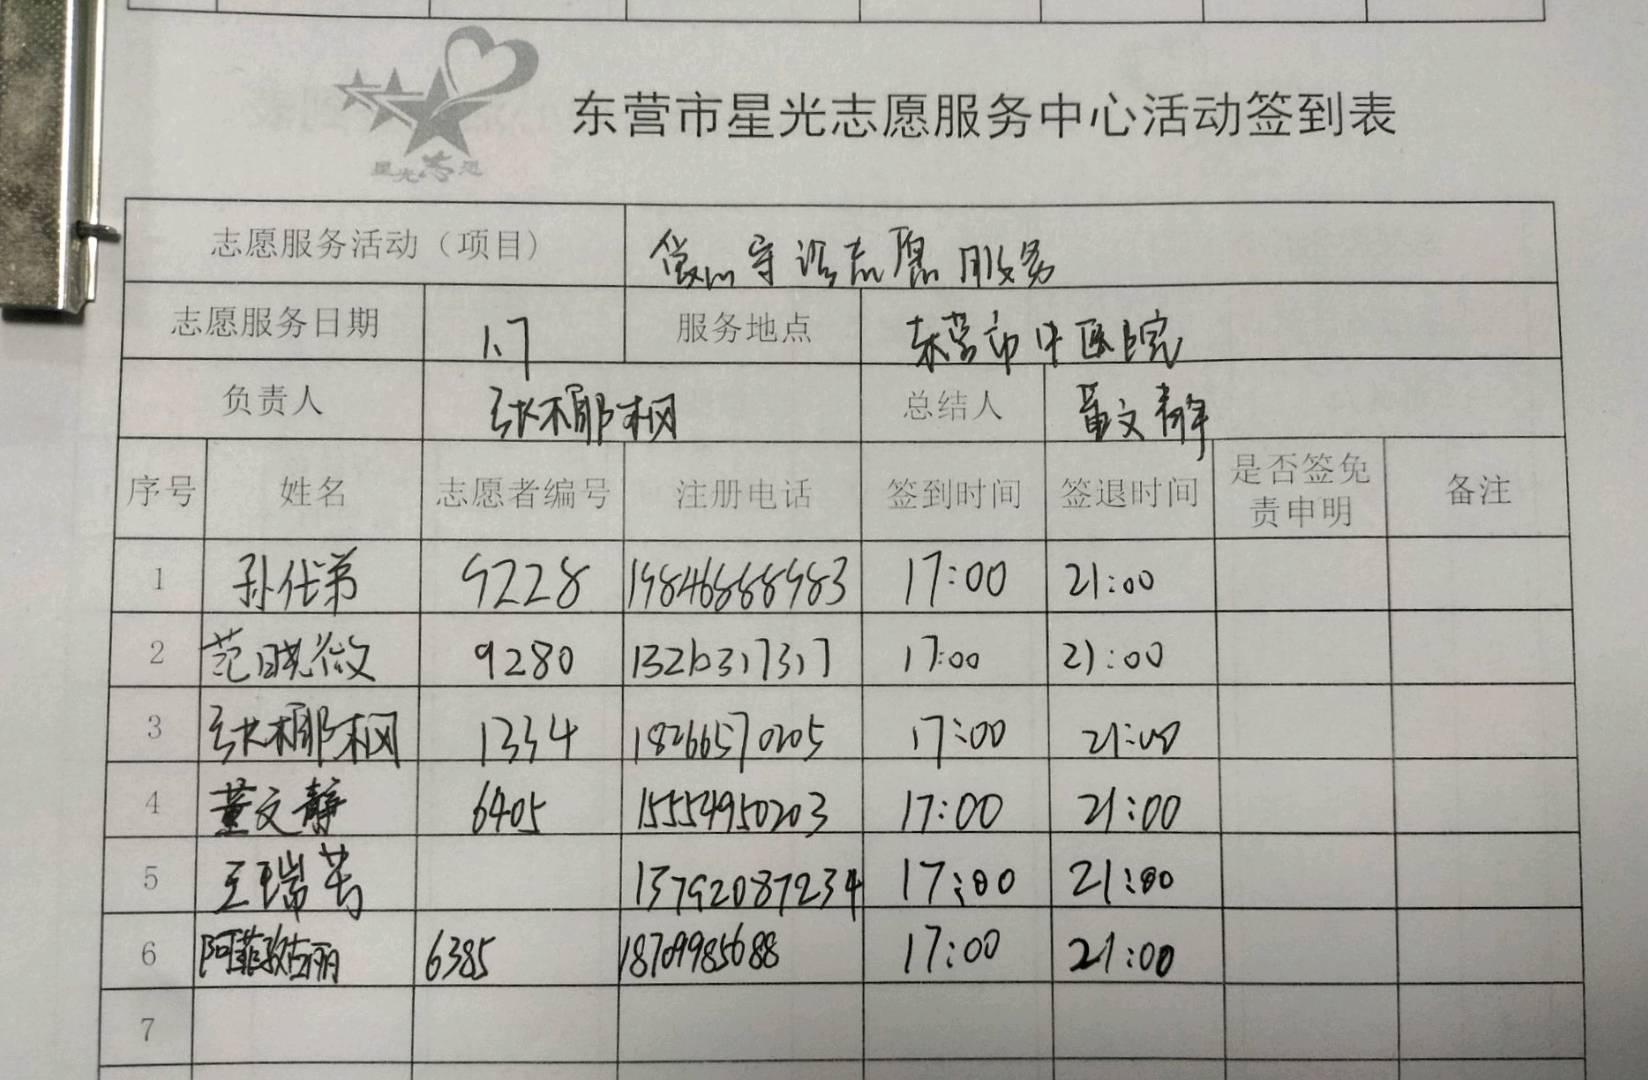 星光志愿
东营市星光志愿服务中心活动签到表
志愿服务活动（项目） 微心守沿志愿服务
志愿服务日期 1.7 服务地点 东营市中医院
负责人 张椰枫 总结人 董文静
序号 姓名 志愿者编号 注册电话 签到时间 签退时间 是否签免责申明 备注
1 孙代弟 9228 19846888983 17:00 21:00
2 范晓微 9280 1326317317 17:00 21:00
3 张椰枫 1334 18266570205 17:00 21:00
4 董文静 6405 15554950203 17:00 21:00
5 王瑞芳 13792087234 17:00 21:00
6 6385 18709985688 17:00 21:00
7